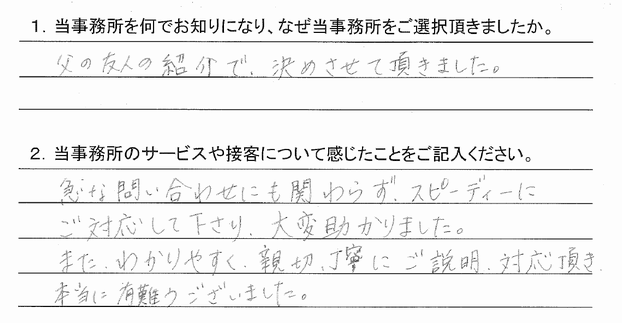 1. 当事務所を何でお知りになり、なぜ当事務所をご選択頂きましたか。
父の友人の紹介で、決めさせて頂きました。
2. 当事務所のサービスや接客について感じたことをご記入ください。
急な問い合わせにも関わらず、スピーディーに
ご対応して下さり、大変助かりました。
また、わかりやすく、親切、丁寧にご説明、対応頂き
本当に有難うございました。